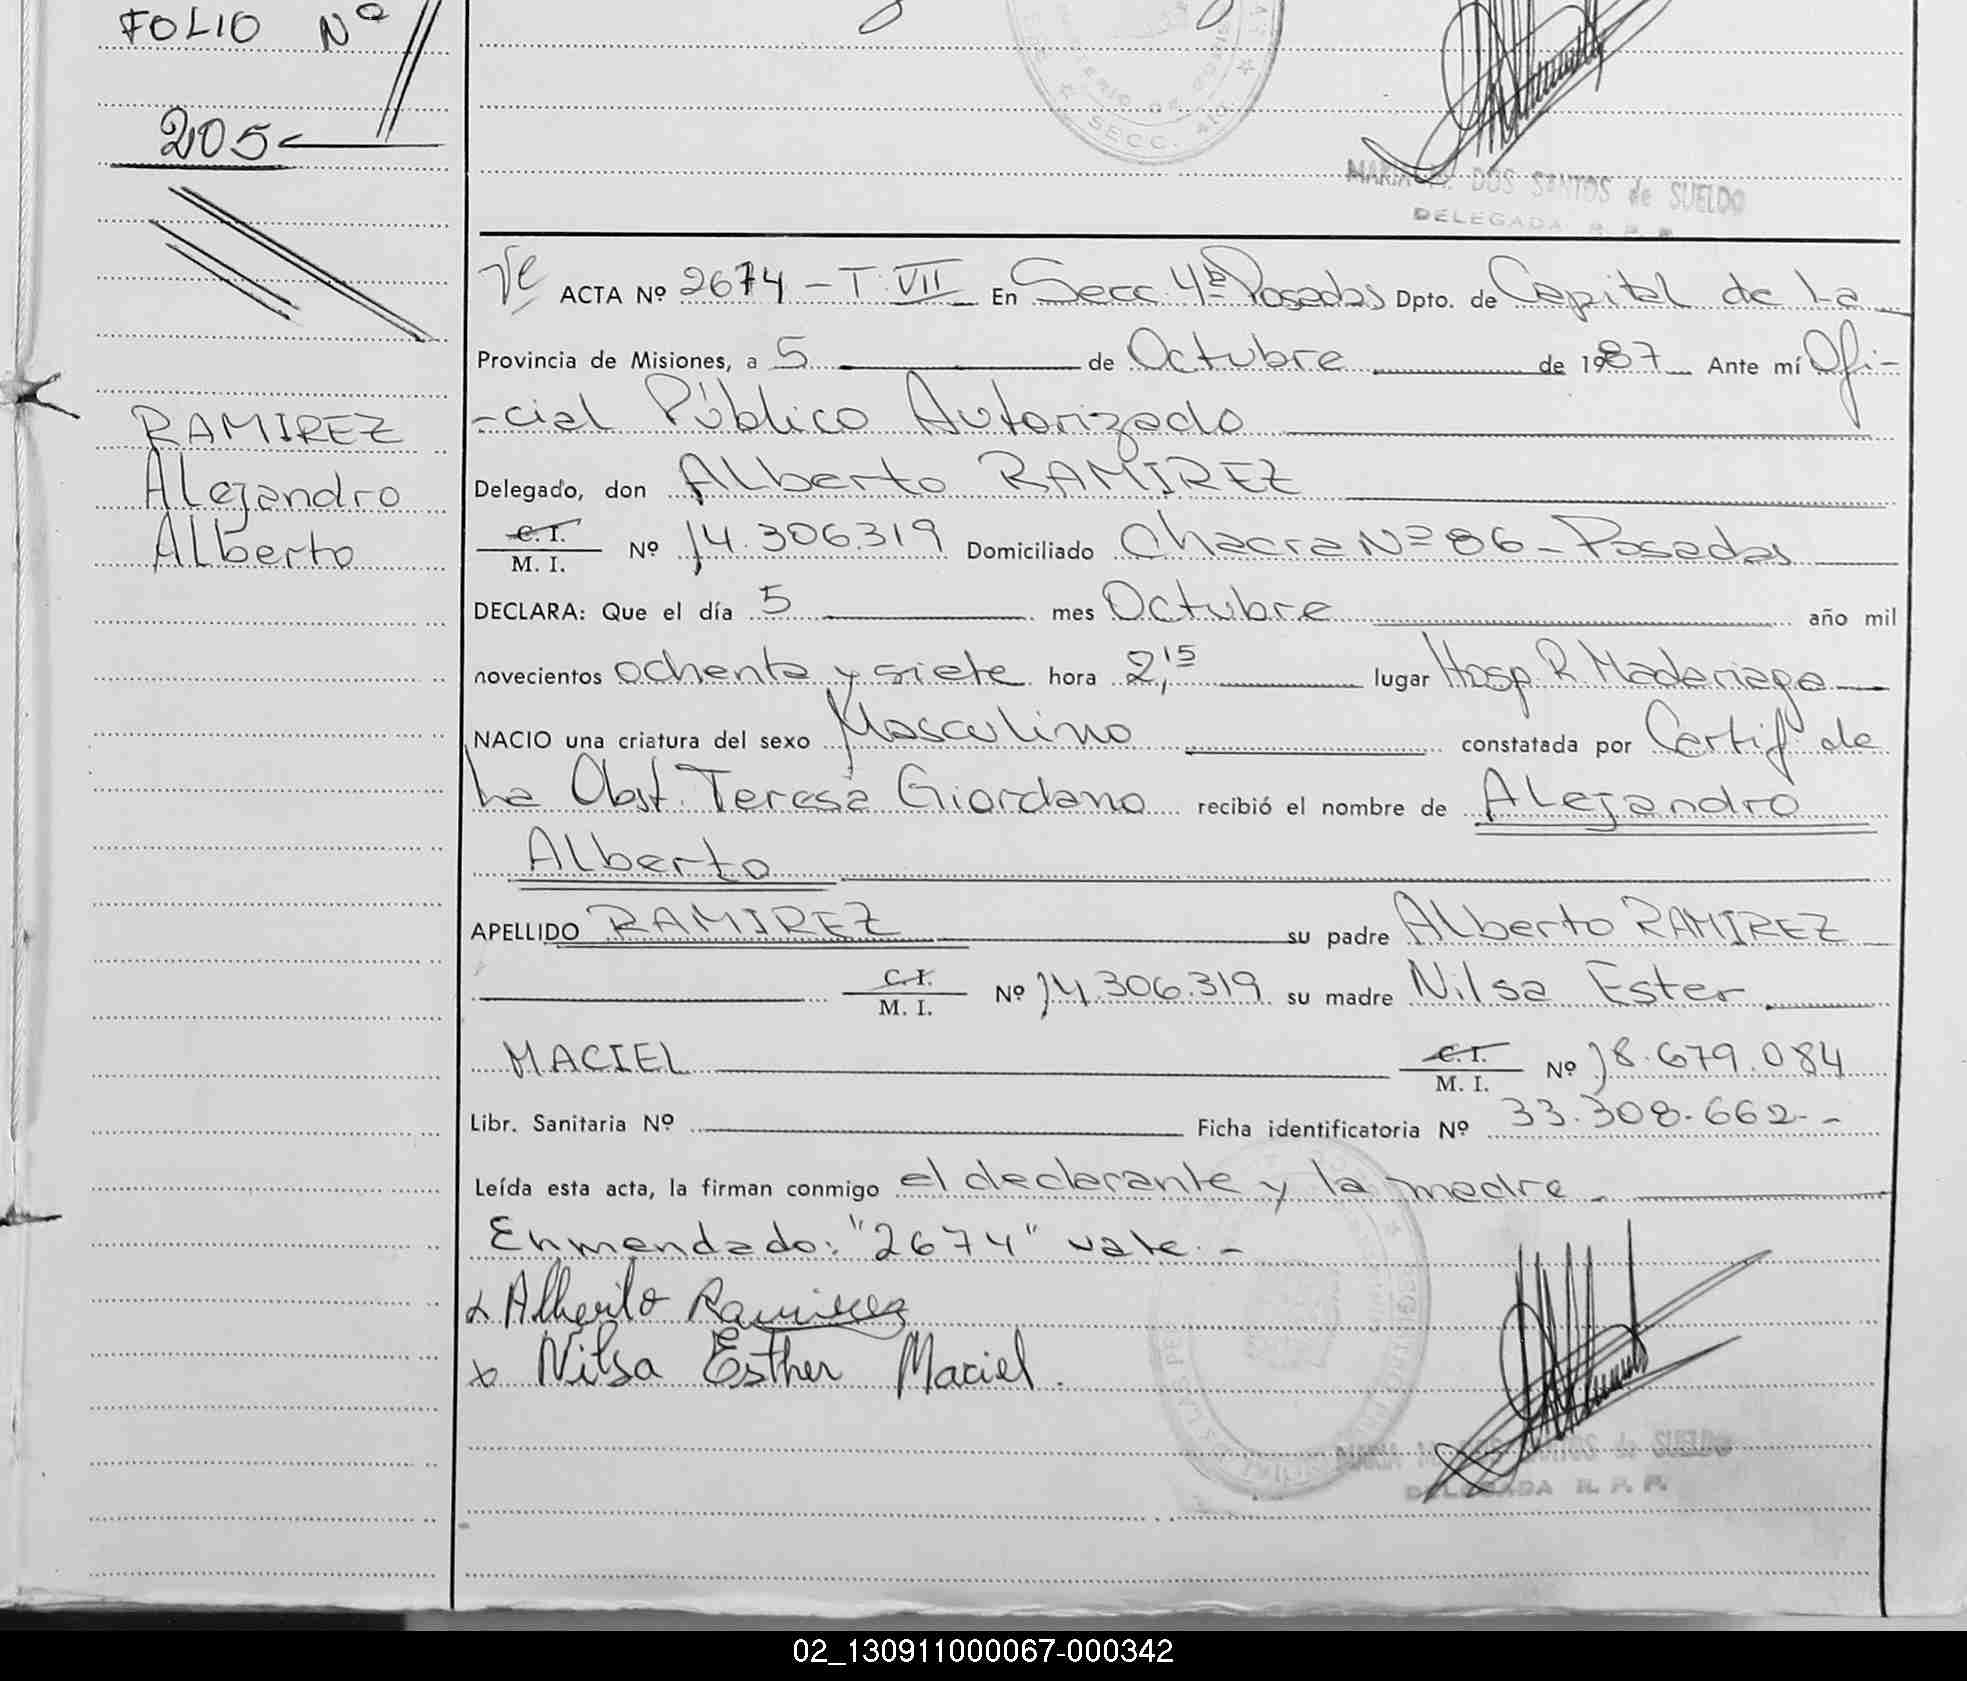 FOLIO Nº
205
SECC. 4ta.
MARIA M. DOS SANTOS de SUELDO
DELEGADA R. P. P.
ACTA Nº 2674 - T. VII En Secc. 4ª Posadas Dpto. de Capital de La
Provincia de Misiones, a 5 de Octubre de 1987 Ante mí Ofi-
-cial Público Autorizado
Delegado, don Alberto RAMIREZ
C. I.
M. I. Nº 14.306.319 Domiciliado Chacra Nº 86 - Posadas
DECLARA: Que el día 5 mes Octubre año mil
novecientos ochenta y siete hora 2,15 lugar Hosp R. Madariaga
NACIO una criatura del sexo Masculino constatada por Certif. de
La Obst. Teresa Giordano recibió el nombre de Alejandro
Alberto
APELLIDO RAMIREZ su padre Alberto RAMIREZ
C. I.
M. I. Nº 14.306.319 su madre Nilsa Ester
MACIEL C. I.
M. I. Nº 18.679.084
Libr. Sanitaria Nº Ficha identificatoria Nº 33.308.662.-
Leída esta acta, la firman conmigo el declarante y la madre.
Enmendado: "2674" vale.-
x Alberto Ramirez
x Nilsa Esther Maciel.
MARIA M. DOS SANTOS de SUELDO
DELEGADA R. P. P.
RAMIREZ
Alejandro
Alberto
02_130911000067-000342